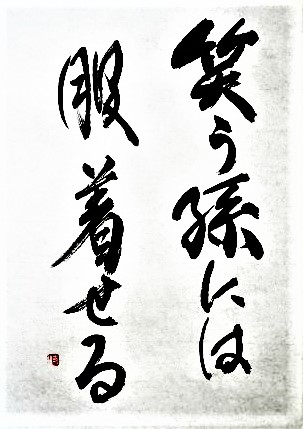 笑う孫には
服着せる